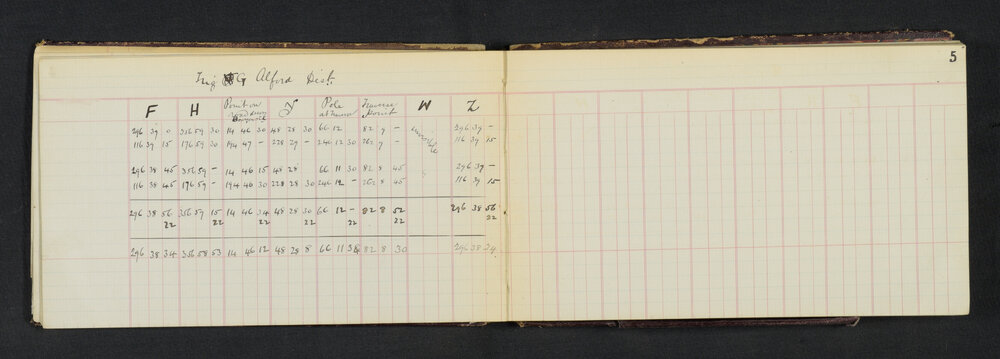 5
Trig G Alford Dist.
F H Point on Y Pole Traverse W Z
Point
296 39 0 356 59 30 14 46 30 48 28 30 66 12 82 9 – 296 39 –
116 39 15 176 59 30 194 47 – 228 29 – 246 12 30 262 9 – 116 39 15
296 38 45 356 59 – 14 46 15 48 28 66 11 30 82 8 45 296 39 –
116 38 45 176 59 – 194 46 30 228 28 30 246 12 – 262 8 45 116 39 15
296 38 56 356 59 15 14 46 34 48 28 30 66 12 – 82 8 52 296 38 56
22 22 22 22 22 22 22
296 38 34 356 58 53 14 46 12 48 28 8 66 11 38 82 8 30 296 38 34